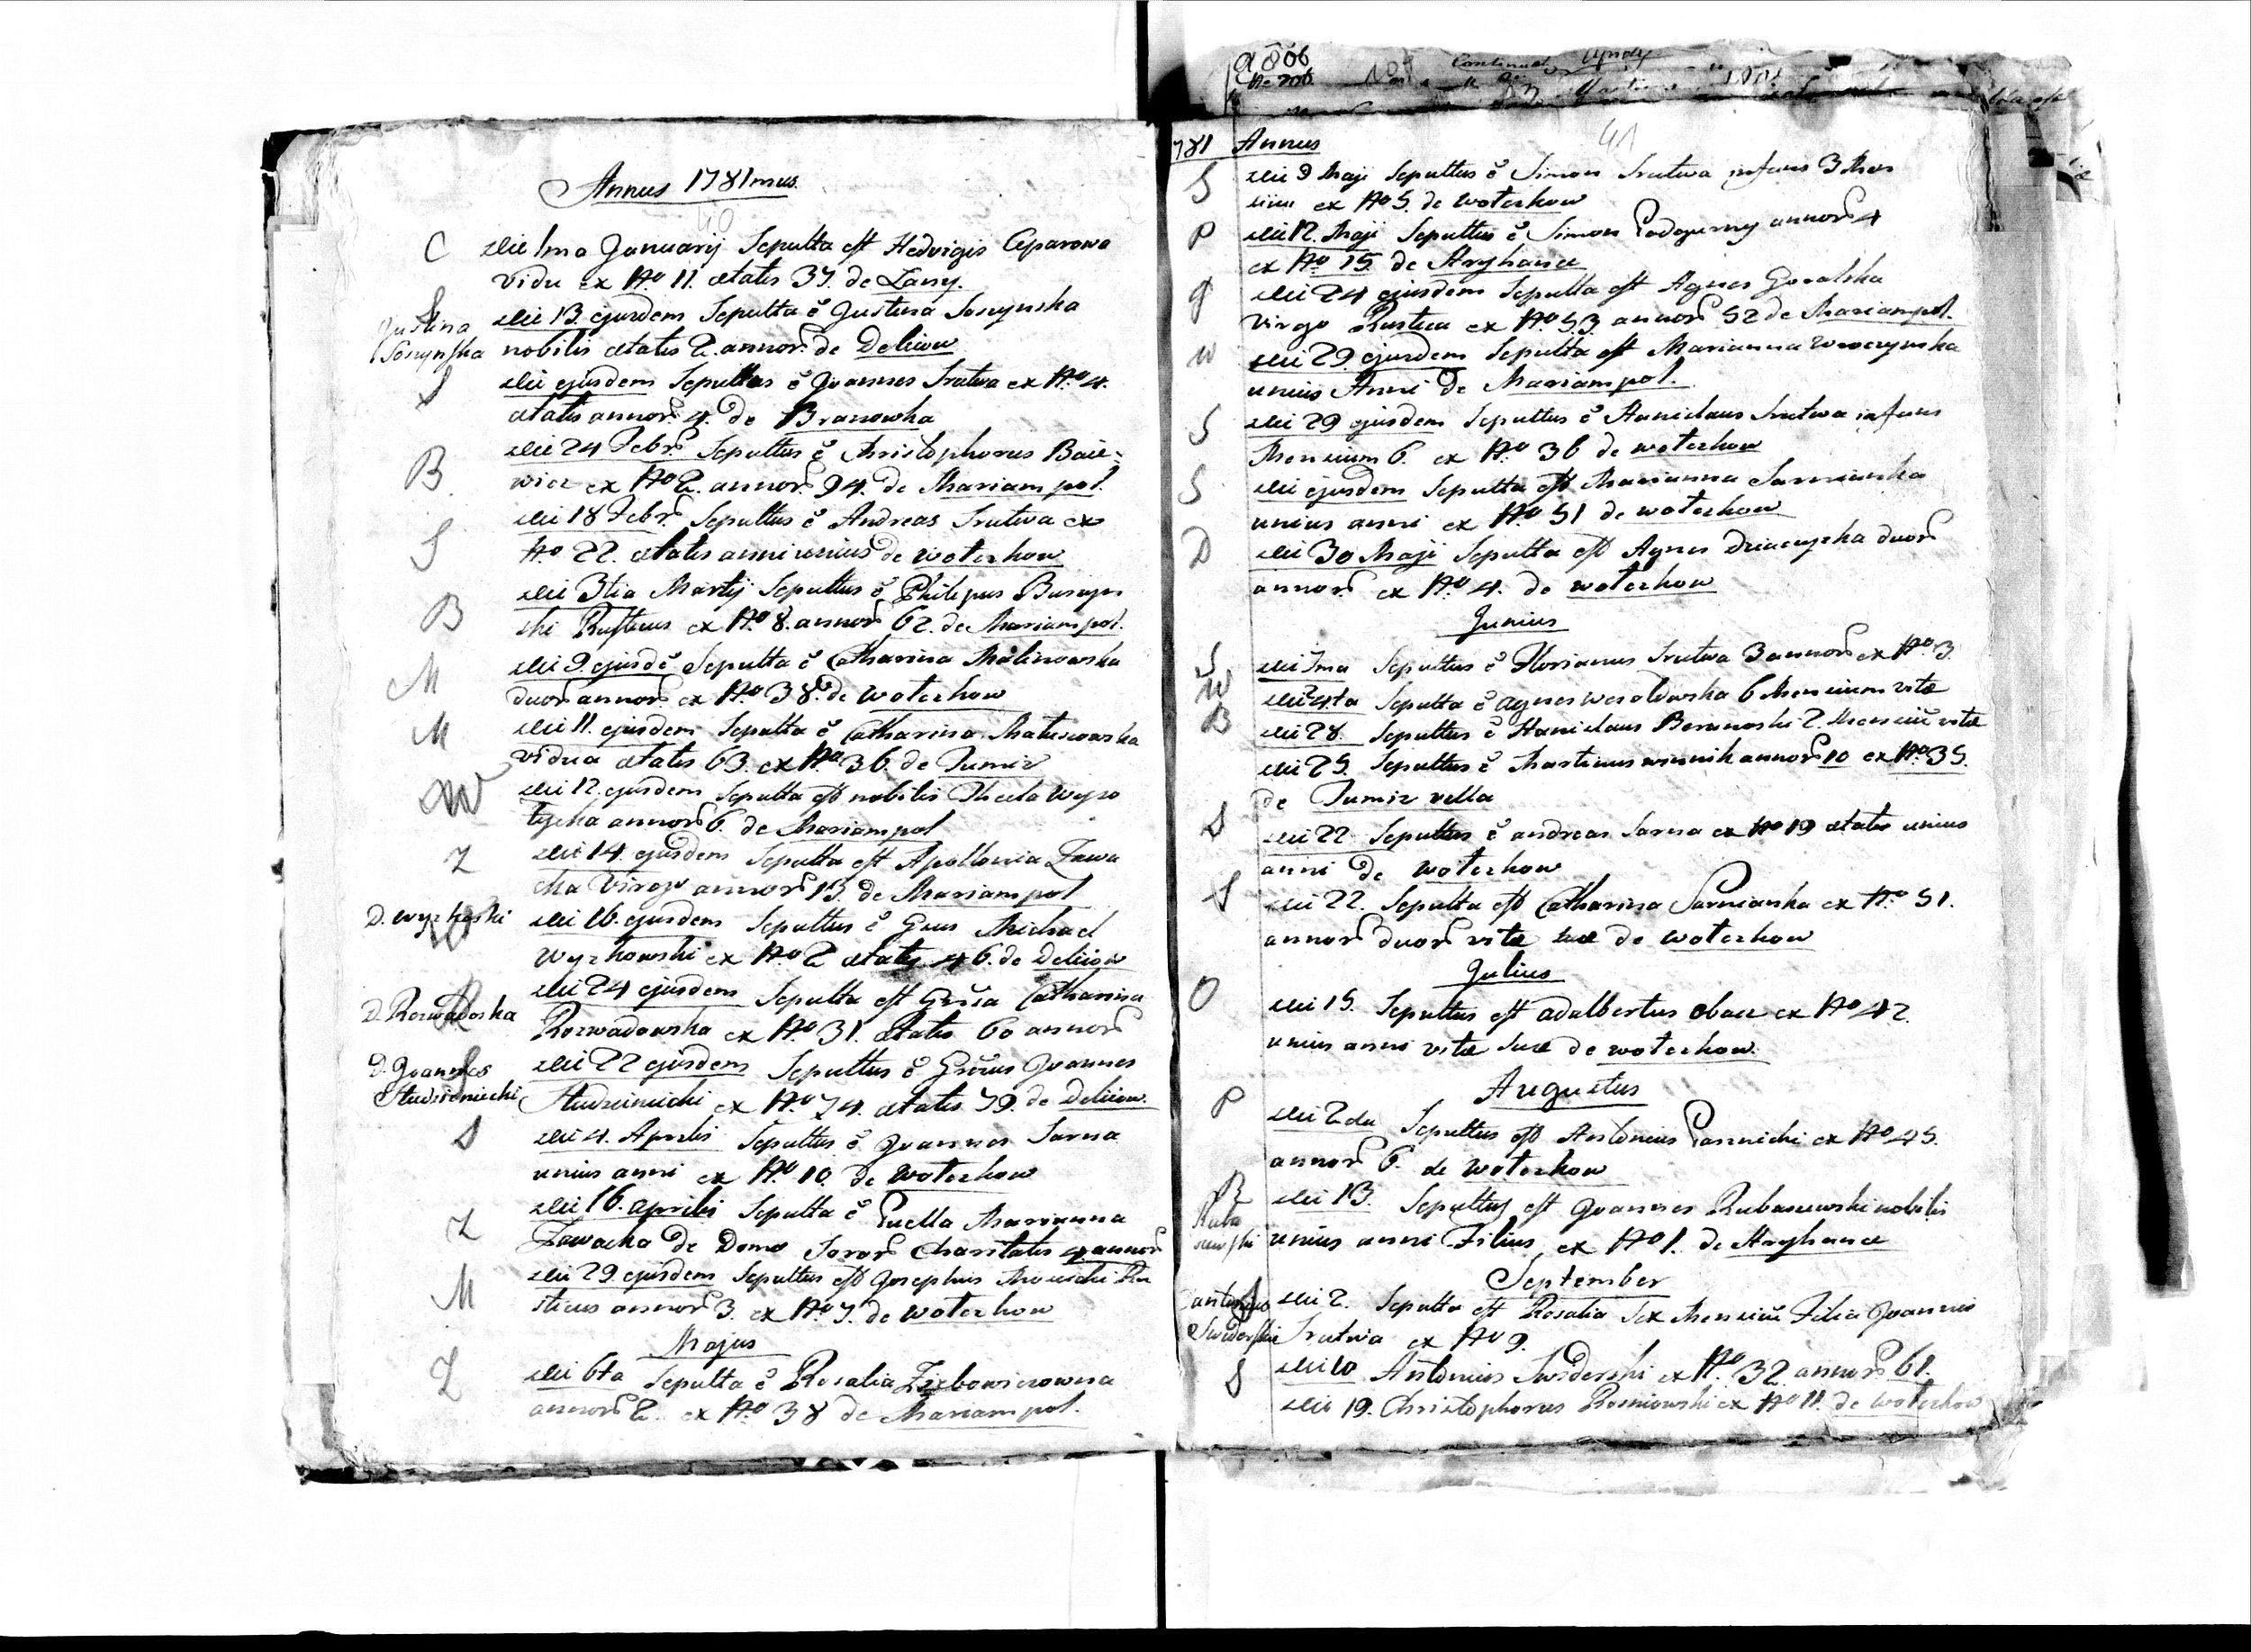 Annus 1781mus.
40
C Die 1ma Januarij Sepulta est Hedvigis Cyparowa
vidu ex No 11. ætatis 37. de Lany.
S Die 13. ejusdem Sepulta ē Justina Sosnynska
Justina
Sosnynska nobilis ætatis 2. annor. de Deliow
S Die ejusdem Sepultus ē Joannes Srutwa ex No 4.
ætatis annor. 4. de Branowka
B Die 24 Febr. Sepultus ē Christophorus Baie-
wicz ex No 2. annor. 94. de Mariampol.
S Die 18 Febr. Sepultus ē Andreas Srutwa ex
No 22. ætatis anni unius de Wotczkow
B Die 3tia Martij Sepultus ē Philipus Busnyn
ski Rusticus ex No 8. annor. 62. de Mariampol.
M Die 9. ejusdē Sepulta ē Catharina Malinowska
duor annor. ex No 38. de Wotczkow
M Die 11. ejusdem Sepulta ē Catharina Matuszowska
vidua ætatis 63. ex No 36. de Tumir
W Die 12. ejusdem Sepulta est nobilis Thecla Wyso
tycka annor. 6. de Mariampol
Z Die 14. ejusdem Sepulta est Apollonia Zawa
cka Virgo annor. 13. de Mariampol
D. Wyzkoski Die 16. ejusdem Sepultus ē Gnus Michael
Wyzkowski ex No 2 ætatis 46. de Deliow
Die 24 ejusdem Sepulta est Grosa Catharina
D. Rozwadoska Rozwadowska ex No 31. ætatis 60 annor.
D. Joannes Die 22 ejusdem Sepultus ē Grosus Joannes
Studzienicki Studzienicki ex No 74. ætatis 79. de Deliow.
S Die 4. Aprilis Sepultus ē Joannes Sarna
unius anni ex No 10. de Wotczkow
Z Die 16. aprilis Sepulta ē Puella Marianna
Zawacka de Domo Soror. Charitatis 4 annor.
M Die 29. ejusdem Sepultus est Josephus Mrowicki Ru
sticus annor. 3. ex No 7. de Wotczkow
Majus
Z Die 6ta Sepulta ē Rosalia Zizbowiczowna
annor. 2. ex No 38 de Mariampol.
1806
781 Annus
41
S Die 9 Maji Sepultus ē Simon Srutwa infans 3 Men
sium ex No 5. de Wotczkow
P Die 12. Maji Sepultus ē Simon Podogurny annor. 4
ex No 15. de Stryhance
G Die 24 ejusdem Sepulta est Agnes Goralska
Virgo Rustica ex No 53. annor. 52 de Mariampol.
W Die 29. ejusdem Sepulta est Marianna Woczynska
unius Anni de Mariampol.
S Die 29 ejusdem Sepultus ē Stanislaus Srutwa infans
Mensium 6. ex No 36 de Wotczkow
S Die ejusdem Sepulta est Marianna Sarnianka
unius anni ex No 51 de Wotczkow
D Die 30 Maji Sepulta est Agnes duor.
annor. ex No 4. de Wotczkow
Junius
S Die 1ma Sepultus ē Florianus Srutwa 3 annor. ex No 3.
W Die 24ta Sepulta ē Agnes Wesołowska 6 Mensium vitæ
B Die 28. Sepultus ē Stanislaus Beranoski 2. Mensiū vitæ
Die 25. Sepultus ē Martinus Winnik annor. 10 ex No 35.
de Tumir villa
S Die 22. Sepultus ē Andreas Sarna ex No 19 ætatis unius
anni de Wotczkow
S Die 22. Sepulta est Catharina Sarnianka ex No 51.
annor. duor. vitæ suæ de Wotczkow
Julius
O Die 15. Sepultus est Adalbertus Obacz ex No 42.
unius anni vitæ suæ de Wotczkow.
Augustus
P Die 2da Sepultus est Antonius Pasnicki ex No 45.
annor. 6. de Wotczkow
R Die 13. Sepultus est Joannes Rubaszewski nobilis
Ruba
szewski unius anni Filius ex No 1. de Stryhance
September
Antonius Die 2. Sepulta est Rosalia Sex Mensiū Filia Joannis
Swiderski Srutwa ex No 9.
S Die 10 Antonius Swiderski ex No 32. annor. 61.
Die 19. Christophorus Rosniowski ex No 11. de Wotczkow